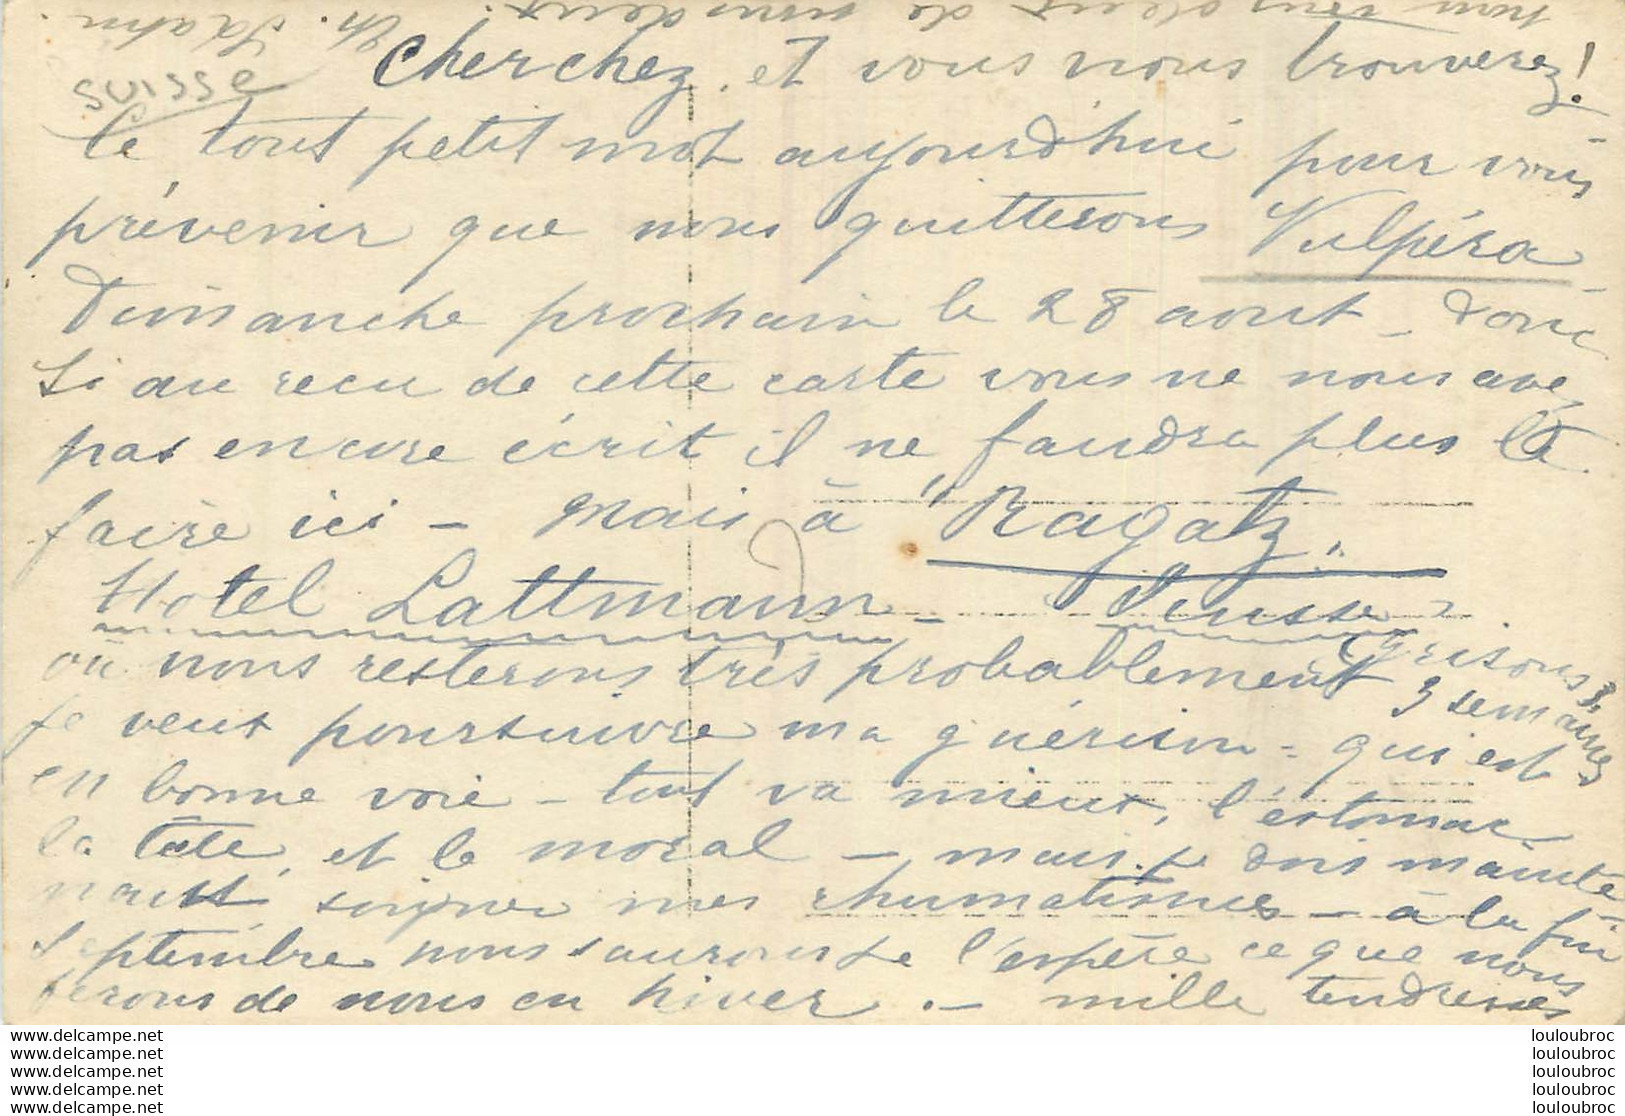 SUISSE
Cherchez, et vous nous trouverez!
Ce tout petit mot aujourd'hui pour vous
prévenir que nous quitterons Vulpéra
Dimanche prochain le 28 aout - donc
Si au recu de cette carte vous ne nous avez
pas encore écrit il ne faudra plus le
faire ici - mais à "Ragatz"
Hotel Lattmann - Suisse
(Grisons)
où nous resterons très probablement 3 semaines
Je veux poursuivre ma guérison - qui est
en bonne voie - tout va mieux, l'estomac
la tête, et le moral - mais je dois mainte
nant soigner mes rhumatismes - à la fin
Septembre nous saurons je l'espère ce que nous
ferons de nous en hiver. - mille tendresses
de nous deux
louloubroc
louloubroc
louloubroc
louloubroc
louloubroc
www.delcampe.net
www.delcampe.net
www.delcampe.net
www.delcampe.net
www.delcampe.net